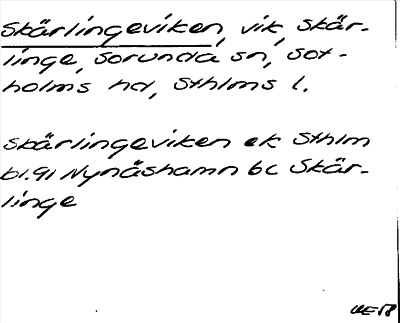 Skärlingeviken, vik, Skär-
linge, Sorunda sn, Sot-
holms hd, Sthlms l.
Skärlingeviken ek Sthlm
bl.91 Nynäshamn bc Skär-
linge